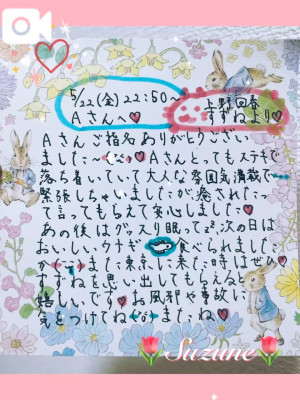 5/22(金) 22:50〜
Aさんへ♥
上野回春
すずねより♥
Aさんご指名ありがとうござい
ました〜(^^)♥Aさんとってもステキで
落ち着いていて大人な雰囲気満載で
緊張しちゃいましたが癒された
って言ってもらえて安心しました♥
あの後はグッスリ眠ってzz次の日は
おいしいウナギ 食べられました
か(^^)また東京に来た時はぜひ
すずねを思い出してもらえると
嬉しいです♥お風邪や事故に
気をつけてね(^o^)またね♥
🌷Suzune🌷